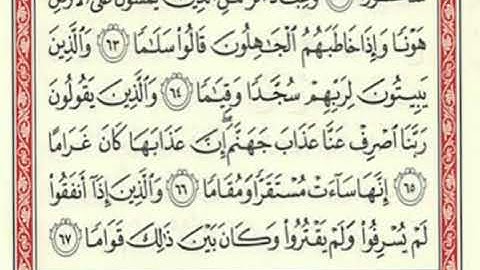 وَعِبَادُ ٱلرَّحْمَـٰنِ ٱلَّذِينَ يَمْشُونَ عَلَى ٱلْأَرْضِ
هَوْنًا وَإِذَا خَاطَبَهُمُ ٱلْجَـٰهِلُونَ قَالُوا۟ سَلَـٰمًا ٦٣ وَٱلَّذِينَ
يَبِيتُونَ لِرَبِّهِمْ سُجَّدًا وَقِيَـٰمًا ٦٤ وَٱلَّذِينَ يَقُولُونَ
رَبَّنَا ٱصْرِفْ عَنَّا عَذَابَ جَهَنَّمَ ۖ إِنَّ عَذَابَهَا كَانَ غَرَامًا
٦٥ إِنَّهَا سَآءَتْ مُسْتَقَرًّا وَمُقَامًا ٦٦ وَٱلَّذِينَ إِذَآ أَنفَقُوا۟
لَمْ يُسْرِفُوا۟ وَلَمْ يَقْتُرُوا۟ وَكَانَ بَيْنَ ذَٰلِكَ قَوَامًا ٦٧